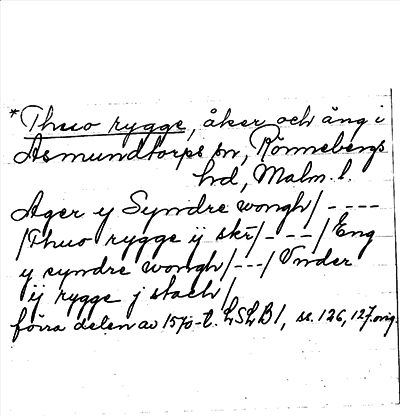 *Thuo rygge, åker och äng i
Asmundtorps sn, Rönnebergs
hd, Malm. l.
Ager y Syndre wongh/ - - - -
/Thuo rygge ij skr/- - - -/Eng
y syndre wongh/---/ Vnder
ij rygge j stach/
förra delen av 1570-t. LSLB1, ss. 126, 127.orig.